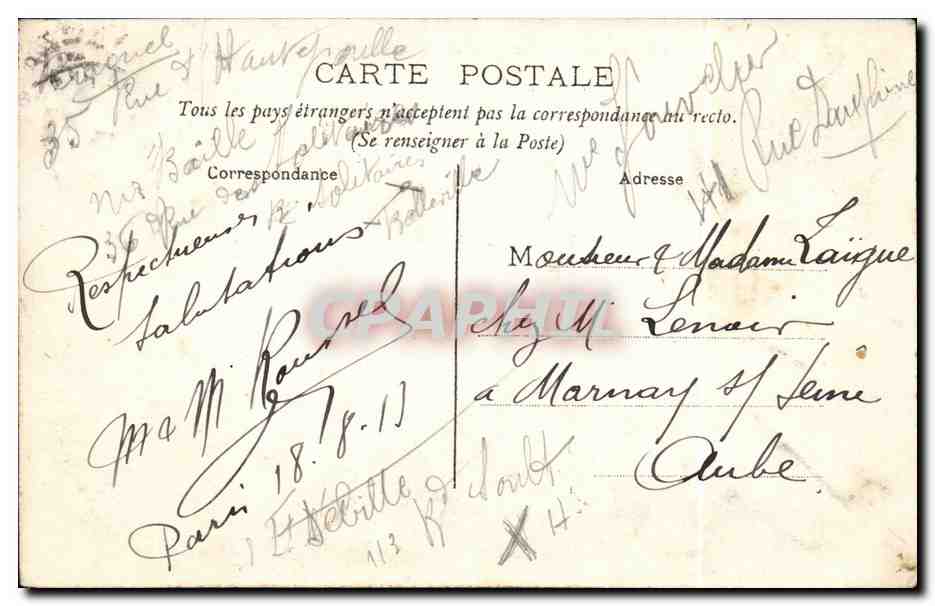 35 Rue d'Hautefeuille
CARTE POSTALE
Tous les pays étrangers n'acceptent pas la correspondance au recto.
(Se renseigner à la Poste)
Correspondance
Adresse
Mr Baille
36 Rue des Solitaires
Belleville
Mme Jourdier
41 Rue Dauphine
Respectueuses
Salutations
M & Me Roussel
Paris 18.8.13
Monsieur & Madame Laïgue
chez M Lenoir
a Marnay s/ Seine
Aube
113 Bd Soult
X H
CPAPHIL